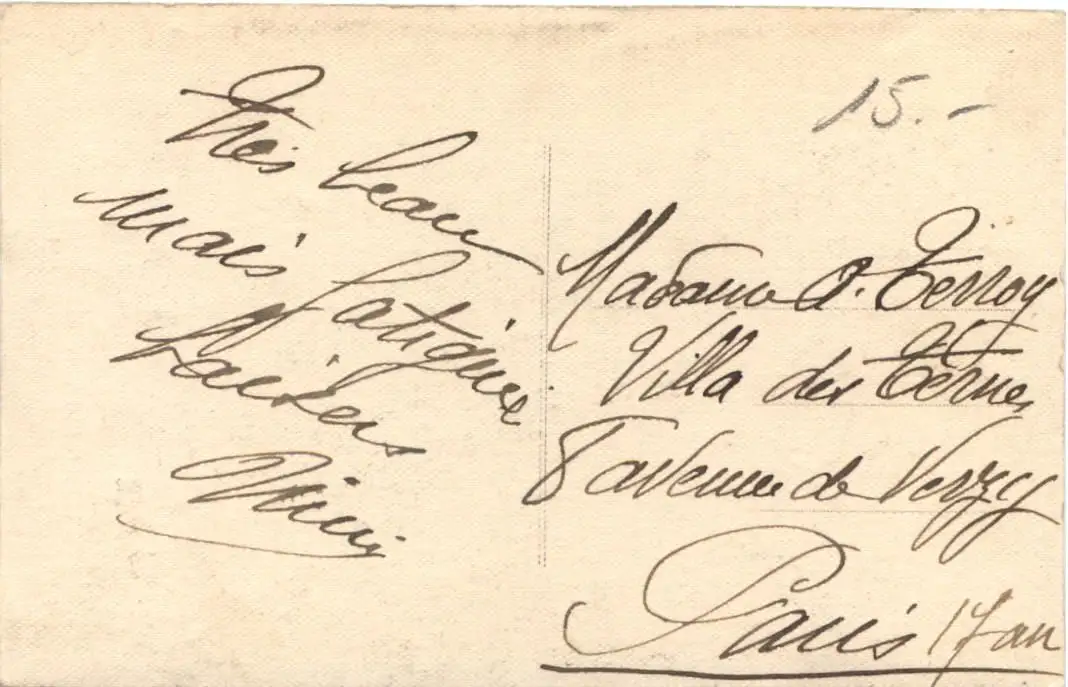 Très beau
mais fatiguée
Baisers
Mimi
15.-
Madame Terroy
Villa des Ternes
8 avenue de Verzy
Paris 17 arr